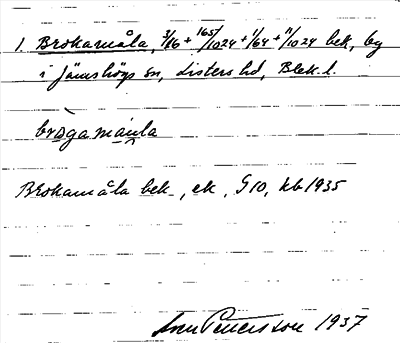 1. Brokamåla, 3/16 + 165/1024 + 1/64 + 11/1024 bek, by
i Jämshögs sn, Listers hd, Blek. l.
brògamàṇla
Brokamåla bek, ek, G10, kb 1935
Sven Petersson 1937